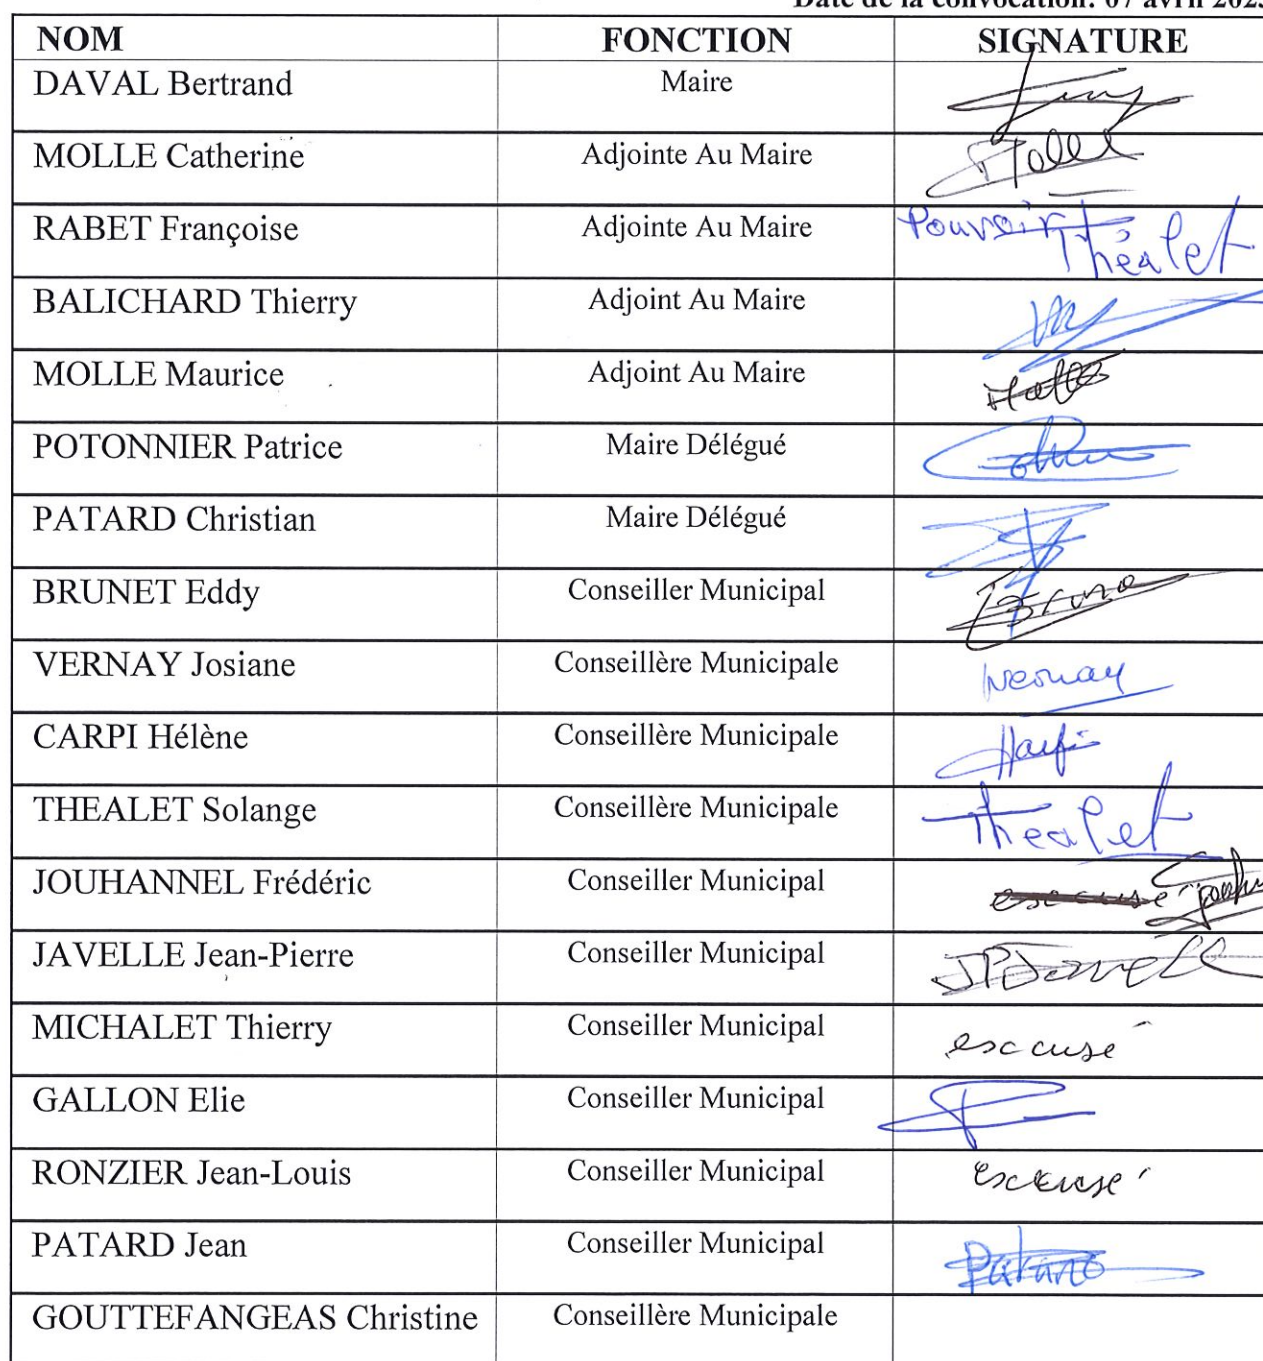 Date de la convocation: 07 avril 2023
NOM FONCTION SIGNATURE
DAVAL Bertrand Maire
MOLLE Catherine Adjointe Au Maire Molle
RABET Françoise Adjointe Au Maire Pouvoir Théalet
BALICHARD Thierry Adjoint Au Maire
MOLLE Maurice Adjoint Au Maire Molle
POTONNIER Patrice Maire Délégué
PATARD Christian Maire Délégué
BRUNET Eddy Conseiller Municipal
VERNAY Josiane Conseillère Municipale Vernay
CARPI Hélène Conseillère Municipale
THEALET Solange Conseillère Municipale Thealet
JOUHANNEL Frédéric Conseiller Municipal
JAVELLE Jean-Pierre Conseiller Municipal JPJavelle
MICHALET Thierry Conseiller Municipal excusé
GALLON Elie Conseiller Municipal
RONZIER Jean-Louis Conseiller Municipal excusé
PATARD Jean Conseiller Municipal Patard
GOUTTEFANGEAS Christine Conseillère Municipale